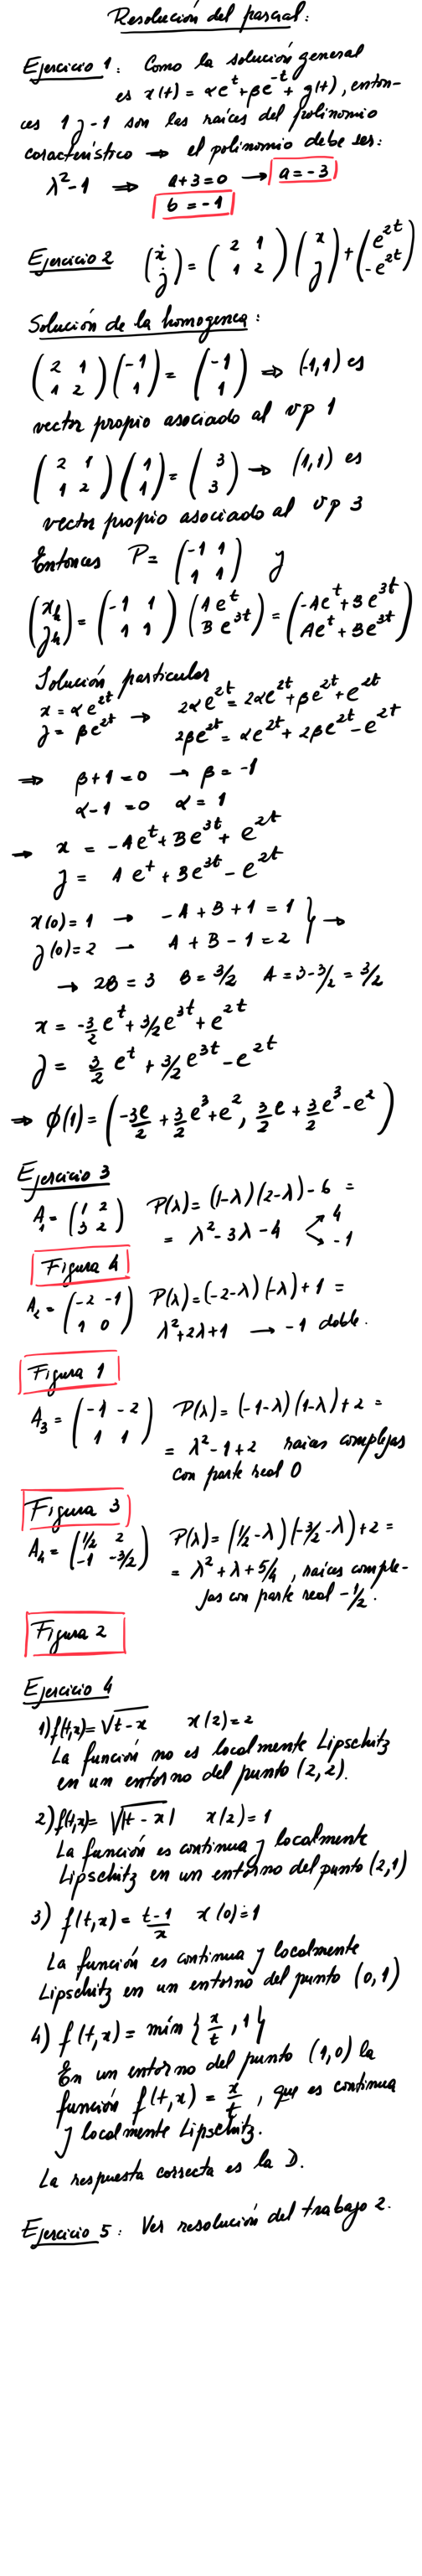 Resolución del parcial:
Ejercicio 1: Como la solución general
es x(t) = αe^t + βe^-t + g(t), enton-
ces 1 y -1 son las raíces del polinomio
característico → el polinomio debe ser:
λ²-1 ⇒ a+3=0 → a=-3
b=-1
Ejercicio 2 (ẋ ẏ) = (2 1 / 1 2)(x y) + (e^2t / -e^2t)
Solución de la homogenea:
(2 1 / 1 2)(-1 / 1) = (-1 / 1) ⇒ (-1,1) es
vector propio asociado al vp 1
(2 1 / 1 2)(1 / 1) = (3 / 3) → (1,1) es
vector propio asociado al vp 3
Entonces P = (-1 1 / 1 1) y
(x_h / y_h) = (-1 1 / 1 1)(Ae^t / Be^3t) = (-Ae^t + Be^3t / Ae^t + Be^3t)
Solución particular
x = αe^2t → 2αe^2t = 2αe^2t + βe^2t + e^2t
y = βe^2t 2βe^2t = αe^2t + 2βe^2t - e^2t
⇒ β+1=0 → β=-1
α-1=0 α=1
→ x = -Ae^t + Be^3t + e^2t
y = Ae^t + Be^3t - e^2t
x(0)=1 → -A+B+1=1 } →
y(0)=2 → A+B-1=2
→ 2B=3 B=3/2 A=3-3/2=3/2
x = -3/2 e^t + 3/2 e^3t + e^2t
y = 3/2 e^t + 3/2 e^3t - e^2t
⇒ φ(1) = (-3e/2 + 3/2 e^3 + e^2, 3/2 e + 3/2 e^3 - e^2)
Ejercicio 3
A₁ = (1 2 / 3 2) P(λ) = (1-λ)(2-λ)-6 =
= λ²-3λ-4 4
-1
Figura 4
A₂ = (-2 -1 / 1 0) P(λ) = (-2-λ)(-λ)+1 =
λ²+2λ+1 → -1 doble.
Figura 1
A₃ = (-1 -2 / 1 1) P(λ) = (-1-λ)(1-λ)+2 =
= λ²-1+2 raices complejas
con parte real 0
Figura 3
A₄ = (1/2 2 / -1 -3/2) P(λ) = (1/2-λ)(-3/2-λ)+2 =
= λ²+λ+5/4, raices comple-
jas con parte real -1/2.
Figura 2
Ejercicio 4
1) f(t,x) = √(t-x) x(2)=2
La función no es localmente Lipschitz
en un entorno del punto (2,2).
2) f(t,x) = √|t-x| x(2)=1
La función es continua y localmente
Lipschitz en un entorno del punto (2,1)
3) f(t,x) = (t-1)/x x(0)=1
La función es continua y localmente
Lipschitz en un entorno del punto (0,1)
4) f(t,x) = mín {x/t, 1}
En un entorno del punto (1,0) la
función f(t,x) = x/t, que es continua
y localmente Lipschitz.
La respuesta correcta es la D.
Ejercicio 5: Ver resolución del trabajo 2.